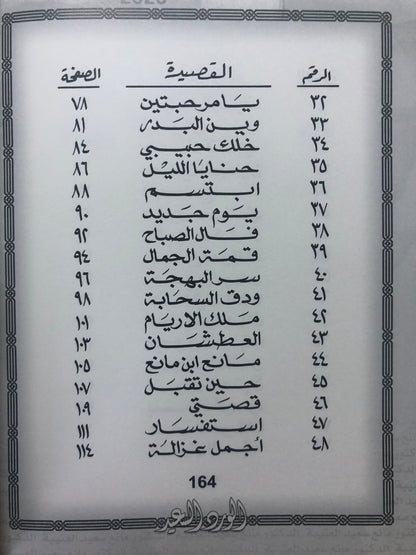 الرقم القصيدة الصفحة
٣٢ يا مرحبتين ٧٨
٣٣ وين البدر ٨١
٣٤ خلك حبيبي ٨٤
٣٥ حنايا الليل ٨٦
٣٦ ابتسم ٨٨
٣٧ يوم جديد ٩٠
٣٨ فال الصباح ٩٢
٣٩ قمة الجمال ٩٤
٤٠ سر البهجة ٩٦
٤١ ودق السحابة ٩٨
٤٢ ملك الاريام ١٠١
٤٣ العطشان ١٠٣
٤٤ مانع ابن مانع ١٠٥
٤٥ حين تقبل ١٠٧
٤٦ قصتي ١٠٩
٤٧ استفسار ١١١
٤٨ أجمل غزالة ١١٤
164